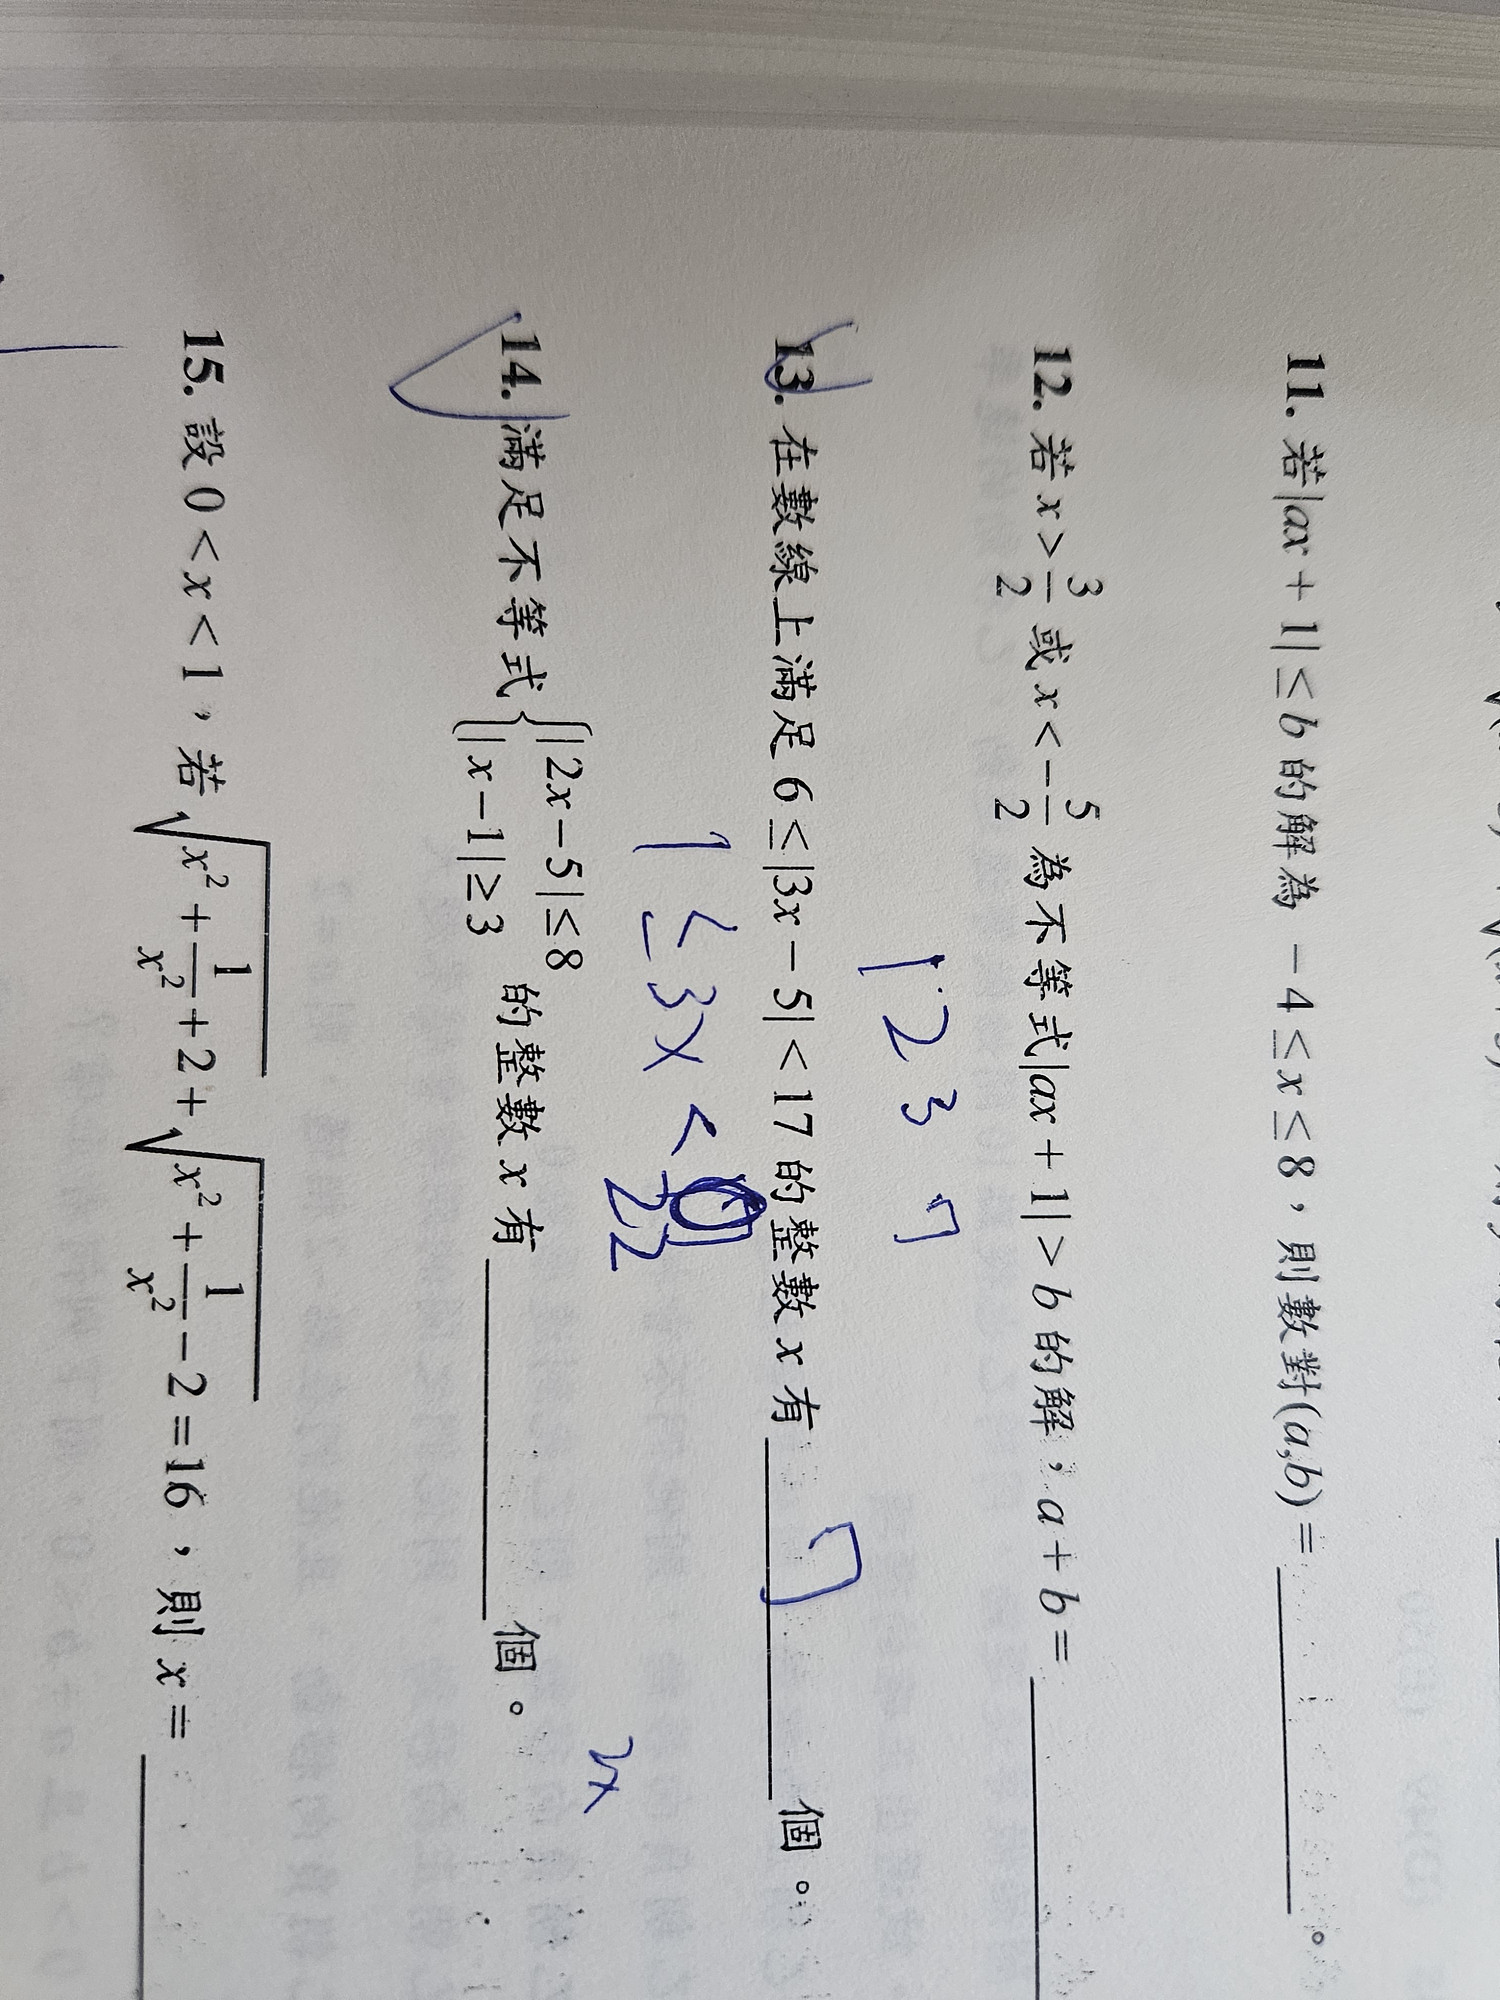 11. 若|ax+1|≤b 的解為 -4≤x≤8，則數對(a,b)=＿＿＿＿。
12. 若 x>3/2 或 x<-5/2 為不等式|ax+1|>b 的解，a+b=＿＿＿＿
1 2 3 7
13. 在數線上滿足 6≤|3x-5|<17 的整數 x 有 7 個。
1≤3x<22
14. 滿足不等式{|2x-5|≤8 |x-1|≥3 的整數 x 有＿＿＿＿個。
15. 設 0<x<1，若√(x²+1/x²+2)+√(x²+1/x²-2)=16，則 x=＿＿＿＿